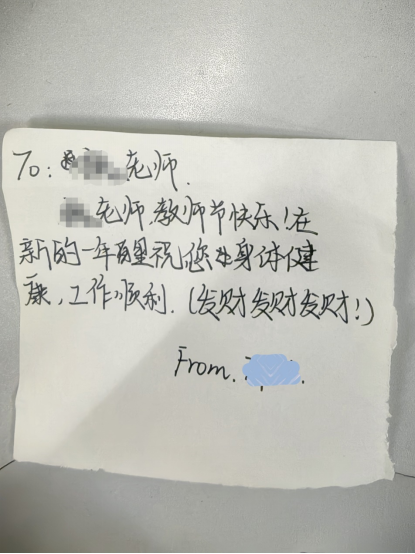 To: 老师.
老师,教师节快乐!在
新的一年里祝您身体健
康,工作顺利.(发财发财发财!)
From.